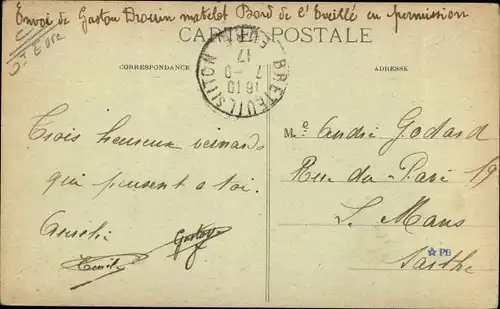 Envoi de Gaston Drouin matelot Bord de l'Eveillé en permission
CARTE POSTALE
CORRESPONDANCE
ADRESSE
BRETEUIL S/ ITON
16 10
7 - 9
17
EURE
Trois heureux
qui pensent a toi.
Gaston
Emile
M. André Godard
Rue du Pavé 19
L. Mans
☆PB
Sarthe